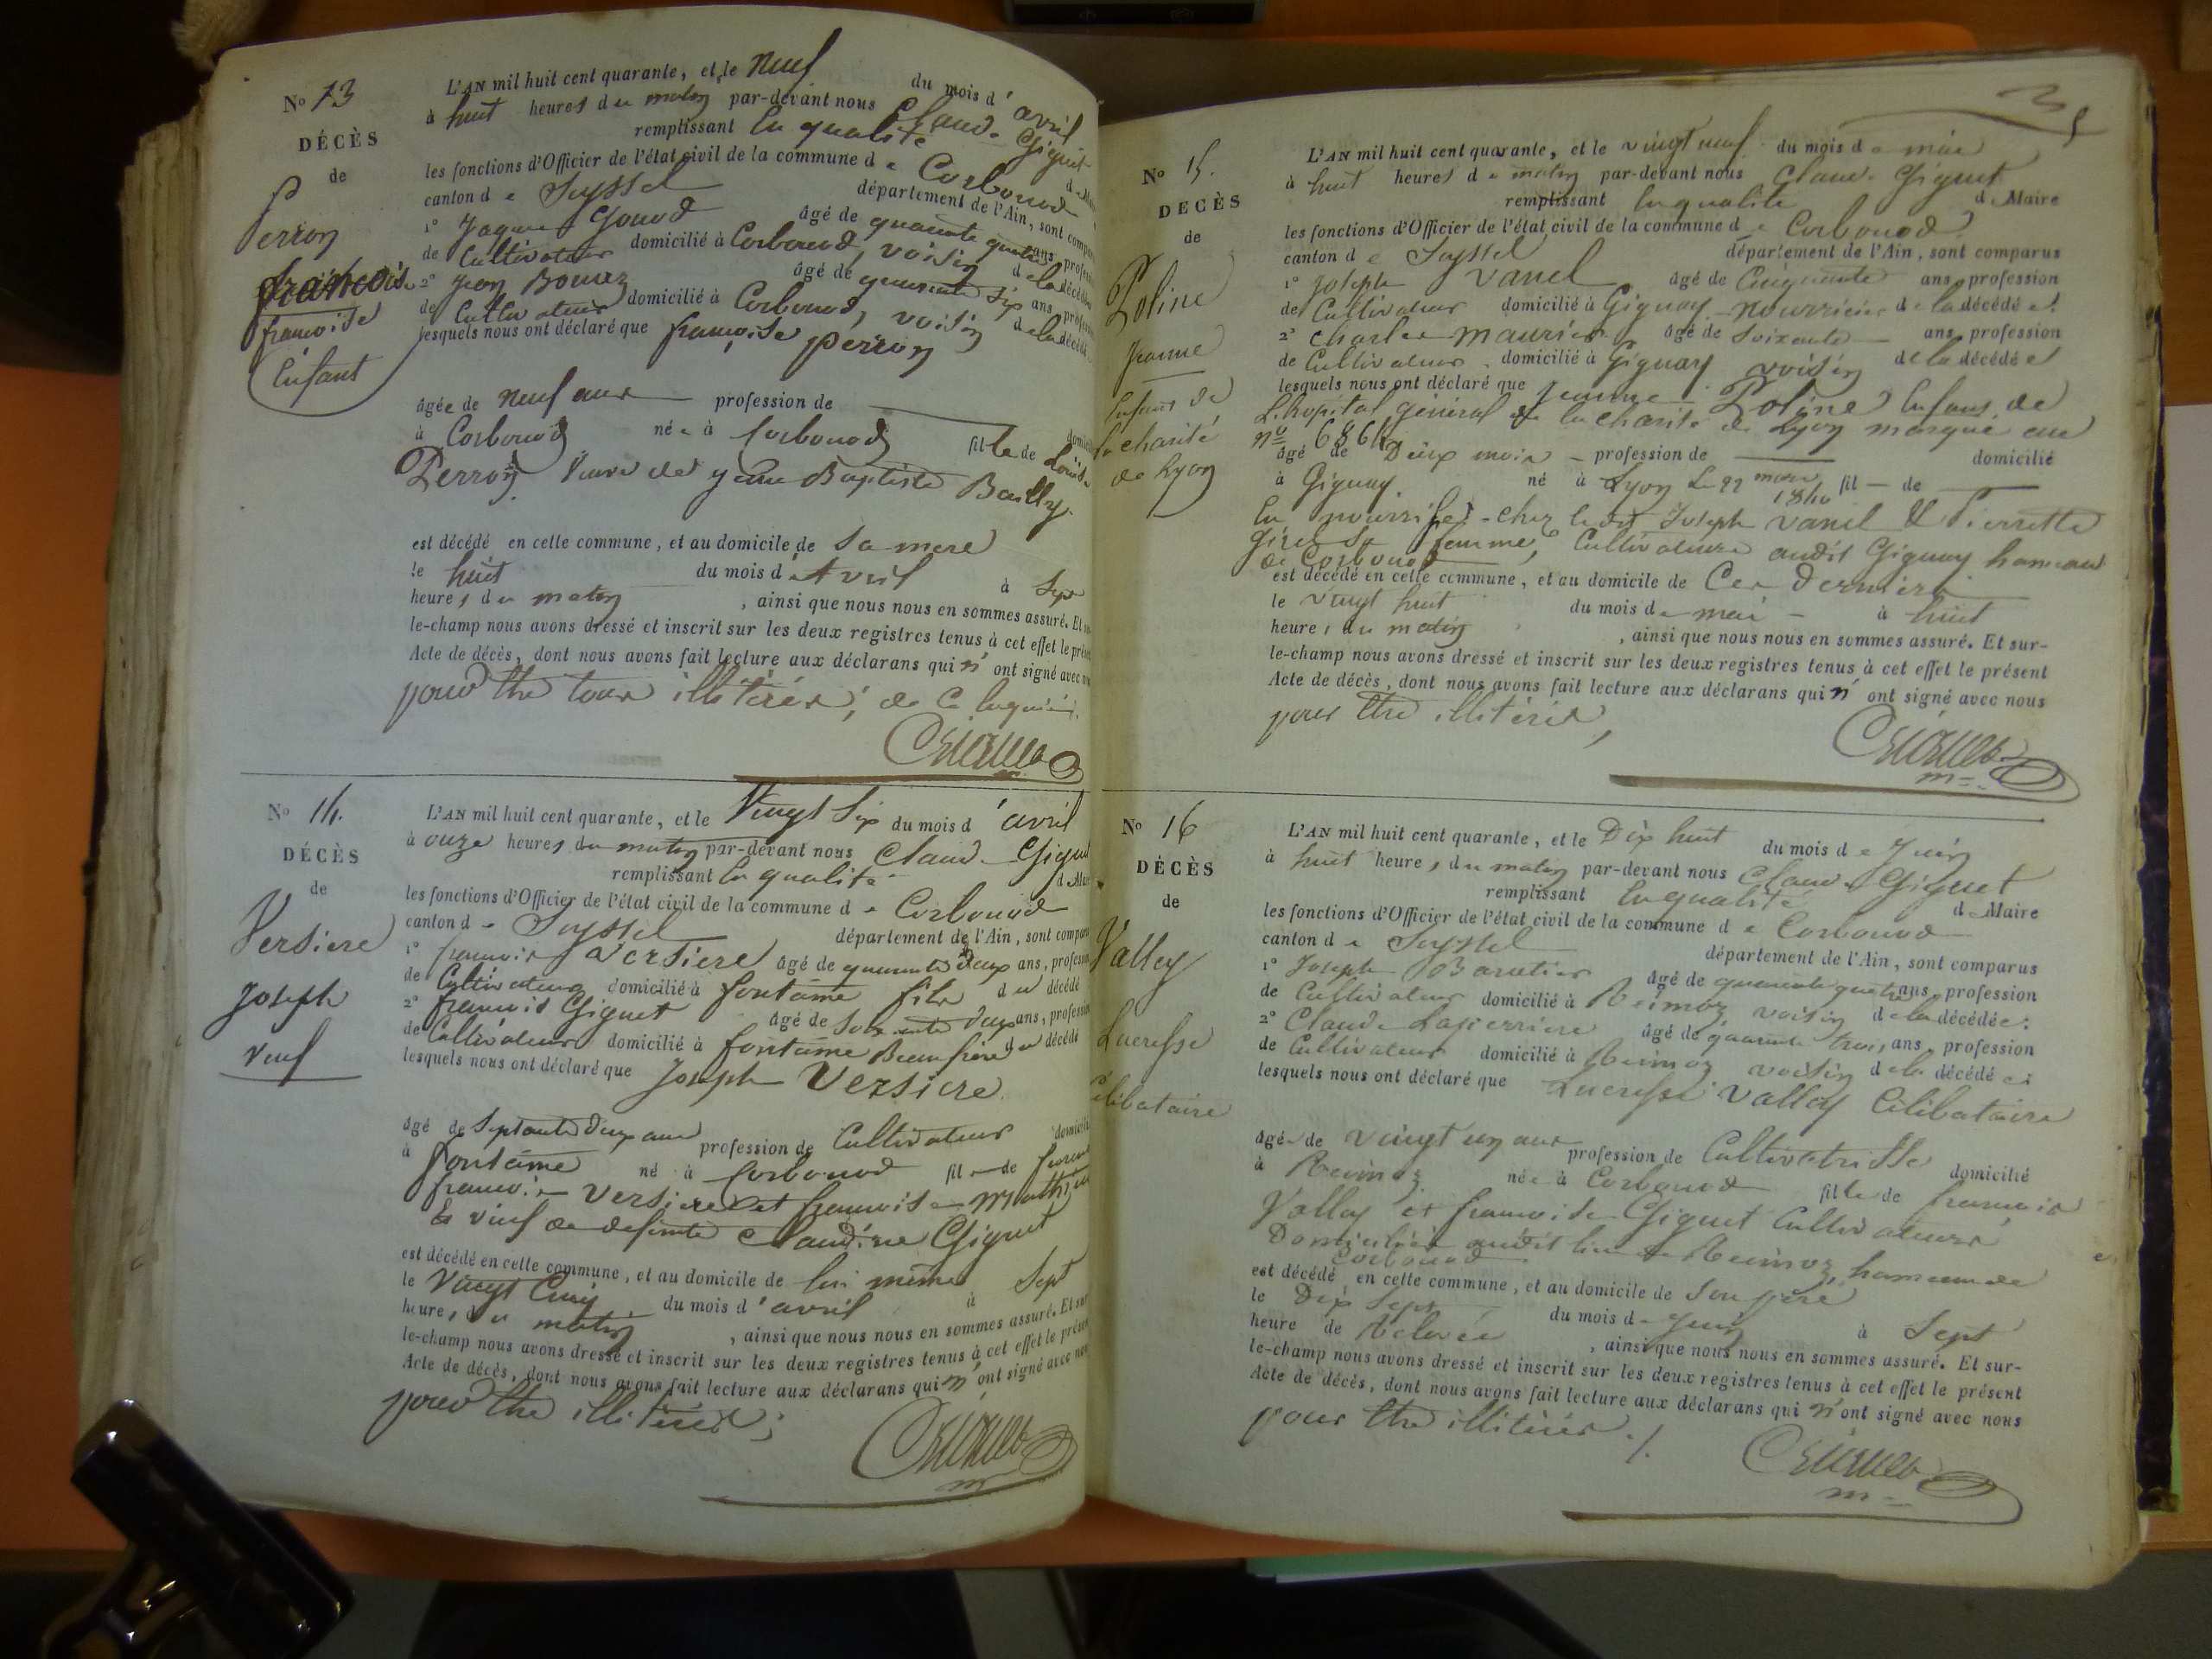 No 13
DÉCÈS
de
Perron
françoise
françoise
Enfant
L'AN mil huit cent quarante, et le neuf du mois d'avril
à huit heures du matin par-devant nous Claude Giguet
remplissant En qualité de Maire
les fonctions d'Officier de l'état civil de la commune de Corbonod
canton de Seyssel département de l'Ain, sont comparus
1° Jaques Gonod âgé de quarante quatre ans profession
de Cultivateur domicilié à Corbonod, voisin de la décédée
2° Jean Bornez âgé de quarante six ans profession
de Cultivateur domicilié à Corbonod, voisin de la décédée
lesquels nous ont déclaré que françoise perron
âgée de neuf ans profession de domicilié
à Corbonod née à Corbonod fille de Louise
Perron Veuve de Jean Baptiste Bailly
est décédé en celle commune, et au domicile de Sa mere
le huit du mois d'Avril à Sept
heures du matin, ainsi que nous nous en sommes assuré. Et sur-
le-champ nous avons dressé et inscrit sur les deux registres tenus à cet effet le présent
Acte de décès, dont nous avons fait lecture aux déclarans qui n'ont signé avec nous
pour être tous illitérés, de ce Enquis.
No 14.
DÉCÈS
de
Versiere
Joseph
veuf
L'AN mil huit cent quarante, et le Vingt Six du mois d'avril
à onze heures du matin par-devant nous Claude Giguet
remplissant En qualité de Maire
les fonctions d'Officier de l'état civil de la commune de Corbonod
canton de Seyssel département de l'Ain, sont comparus
1° françois Versiere âgé de quarante Deux ans, profession
de Cultivateur domicilié à fontaine fils du décédé
2° françois Giguet âgé de Soixante Deux ans, profession
de Cultivateur domicilié à fontaine Beaufrère du décédé
lesquels nous ont déclaré que Joseph Versiere
âgé de Septante Deux ans profession de Cultivateur domicilié
à fontaine né à Corbonod fils de
françois Versiere et françoise Mathieu
Et veuf de defunte Claudine Giguet
est décédé en celle commune, et au domicile de lui même
le Vingt Cinq du mois d'avril à Sept
heures du matin, ainsi que nous nous en sommes assuré. Et sur-
le-champ nous avons dressé et inscrit sur les deux registres tenus à cet effet le présent
Acte de décès, dont nous avons fait lecture aux déclarans qui n'ont signé avec nous
pour être illitérés;
No 15.
DÉCÈS
de
Poline
jeanne
Enfans de
la charité
de Lyon
L'AN mil huit cent quarante, et le vingt neuf du mois de mai
à huit heures du matin par-devant nous Claude Giguet
remplissant En qualité de Maire
les fonctions d'Officier de l'état civil de la commune de Corbonod
canton de Seyssel département de l'Ain, sont comparus
1° Joseph Vanel âgé de Cinquante ans profession
de Cultivateur domicilié à Gignay nourricier de la décédée
2° Charles Maurier âgé de Soixante ans profession
de Cultivateur domicilié à Gignay voisin de la décédée
lesquels nous ont déclaré que jeanne Poline Enfans de
L'hopital général de la charité de Lyon marque au
n° 6861
âgé de Deux mois profession de domicilié
à Gignay né à Lyon Le 22 mars 1840 fil de
En nourrice chez le dit Joseph vanel & Pierrette
Girel Sa femme, Cultivateurs audit Gignay hameau
de Corbonod
est décédé en celle commune, et au domicile de Ces Derniers
le vingt huit du mois de mai à huit
heures du matin, ainsi que nous nous en sommes assuré. Et sur-
le-champ nous avons dressé et inscrit sur les deux registres tenus à cet effet le présent
Acte de décès, dont nous avons fait lecture aux déclarans qui n'ont signé avec nous
pour être illitérés,
No 16
DÉCÈS
de
Valley
Lucresse
Célibataire
L'AN mil huit cent quarante, et le Dix huit du mois de Juin
à huit heures du matin par-devant nous Claude Giguet
remplissant En qualité de Maire
les fonctions d'Officier de l'état civil de la commune de Corbonod
canton de Seyssel département de l'Ain, sont comparus
1° Joseph Baratier âgé de quarante quatre ans, profession
de Cultivateur domicilié à Reimoz voisin de la décédée.
2° Claude Laperriere âgé de quarante trois, ans, profession
de Cultivateur domicilié à Reimoz voisin de la décédée
lesquels nous ont déclaré que Lucresse Valley Célibataire
âgée de vingt un ans profession de Cultivatrisse domicilié
à Reimoz née à Corbonod fille de françois
Valley et françoise Giguet Cultivateurs
Domiciliés audit lieu de Reimoz, hameau de
Corbonod
est décédé en celle commune, et au domicile de Son père
le Dix Sept du mois de Juin à Sept
heure de Relevée, ainsi que nous nous en sommes assuré. Et sur-
le-champ nous avons dressé et inscrit sur les deux registres tenus à cet effet le présent
Acte de décès, dont nous avons fait lecture aux déclarans qui n'ont signé avec nous
pour être illitérés ./.